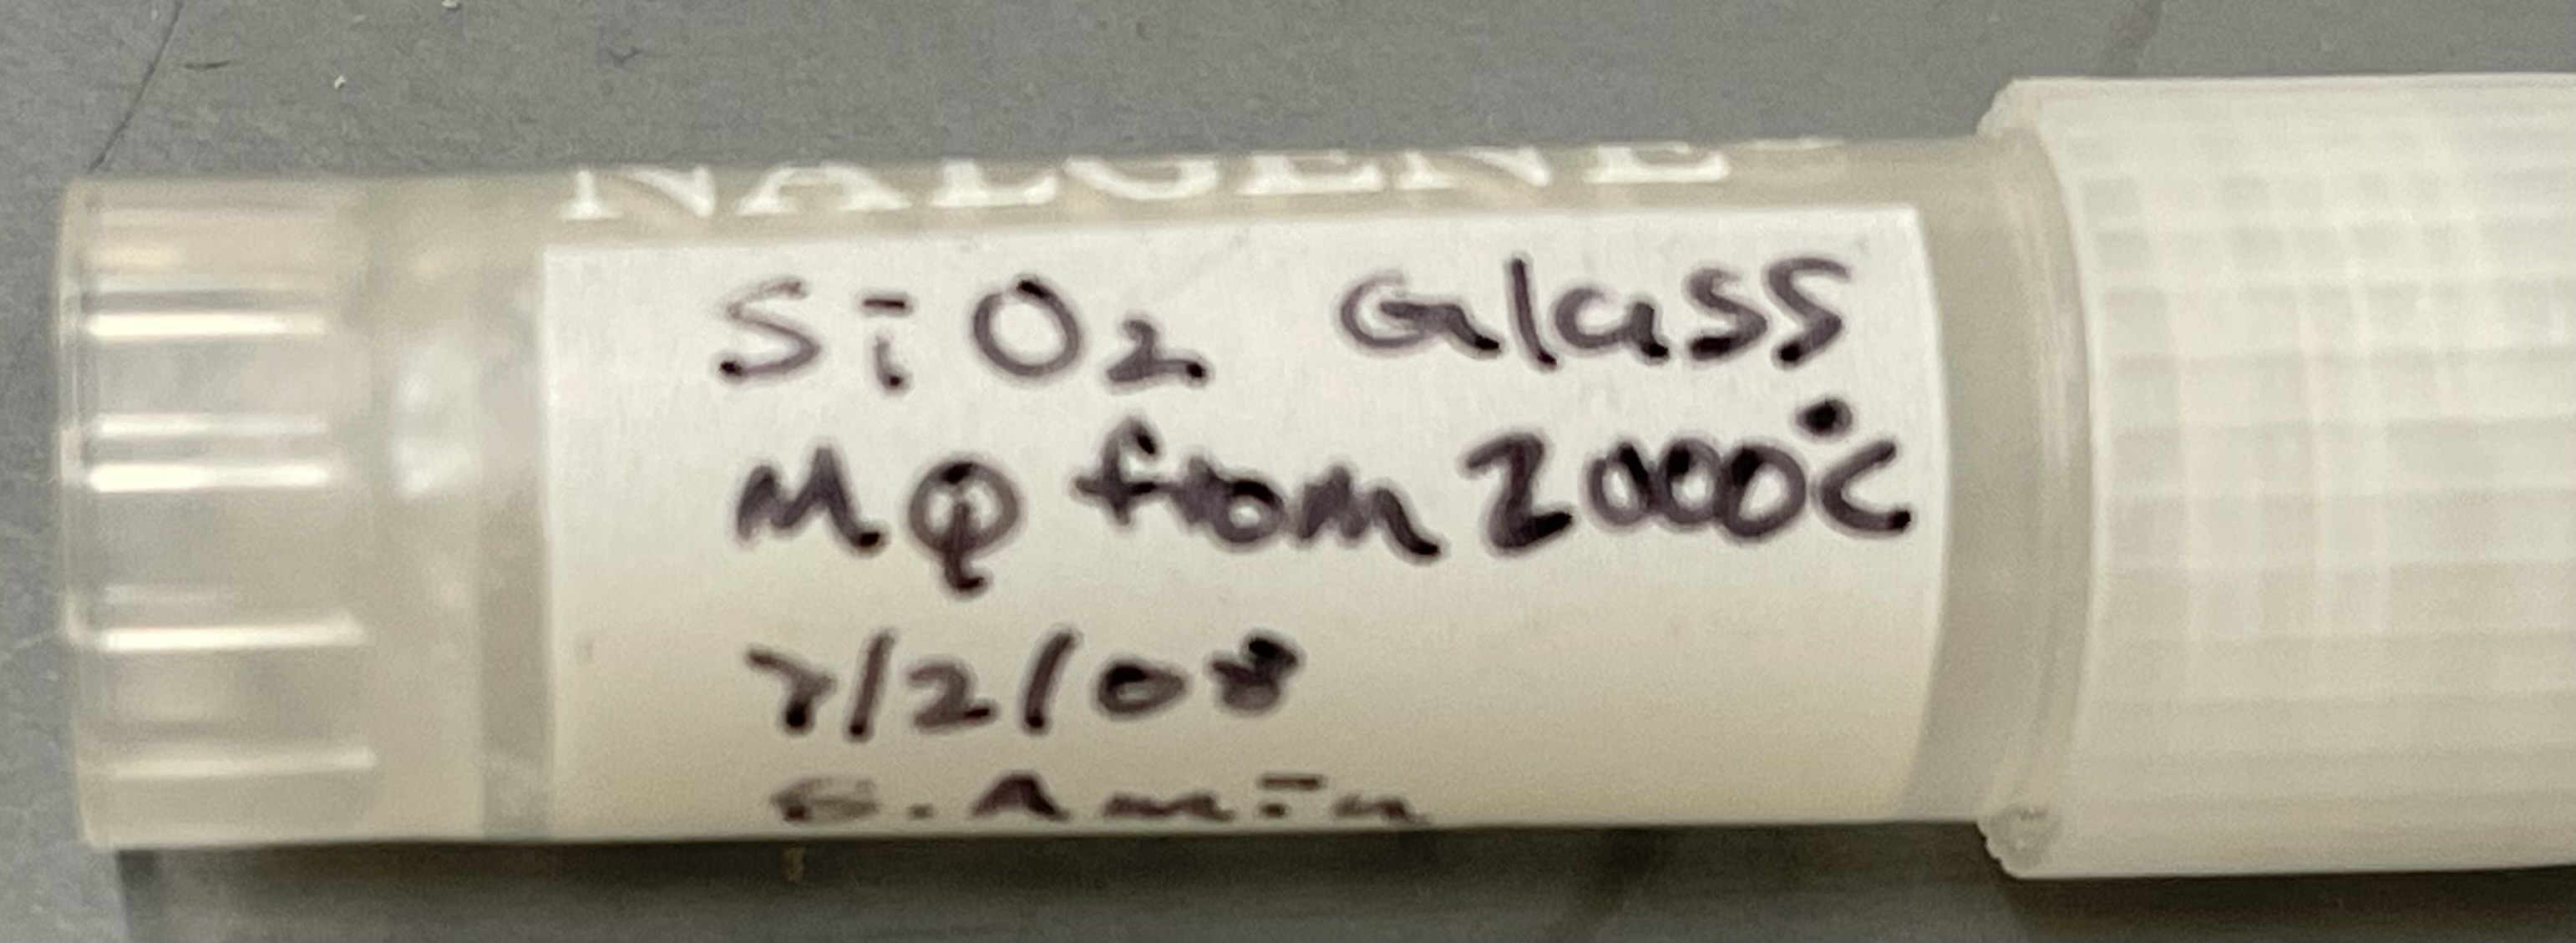 NALGENE
SiO2 Glass
MQ from 2000°C
7/2/08
S. Amin